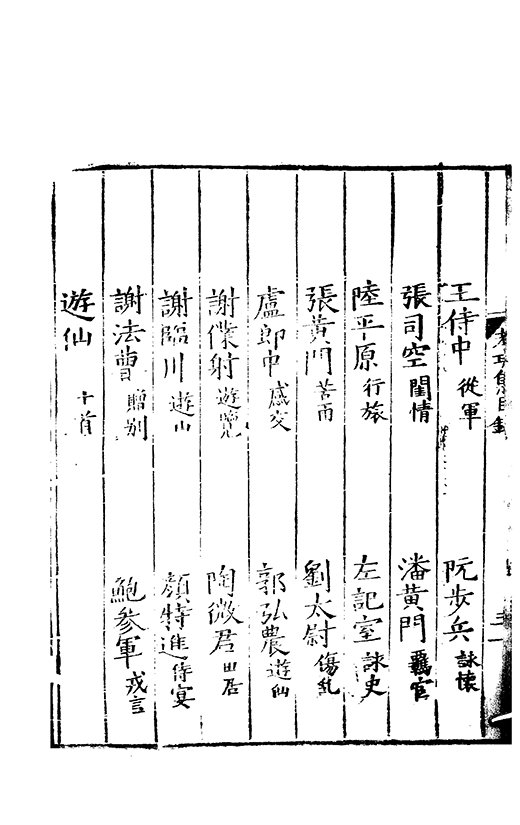 考功集目錄
王侍中 從軍 阮步兵 詠懷
張司空 閨情 潘黃門 羈官
陸平原 行旅 左記室 詠史
張黃門 苦雨 劉太尉 傷亂
盧郎中 感交 郭弘農 遊仙
謝僕射 遊覽 陶徵君 田居
謝臨川 遊山 顏特進 侍宴
謝法曹 贈別 鮑參軍 戎言
遊仙 十首